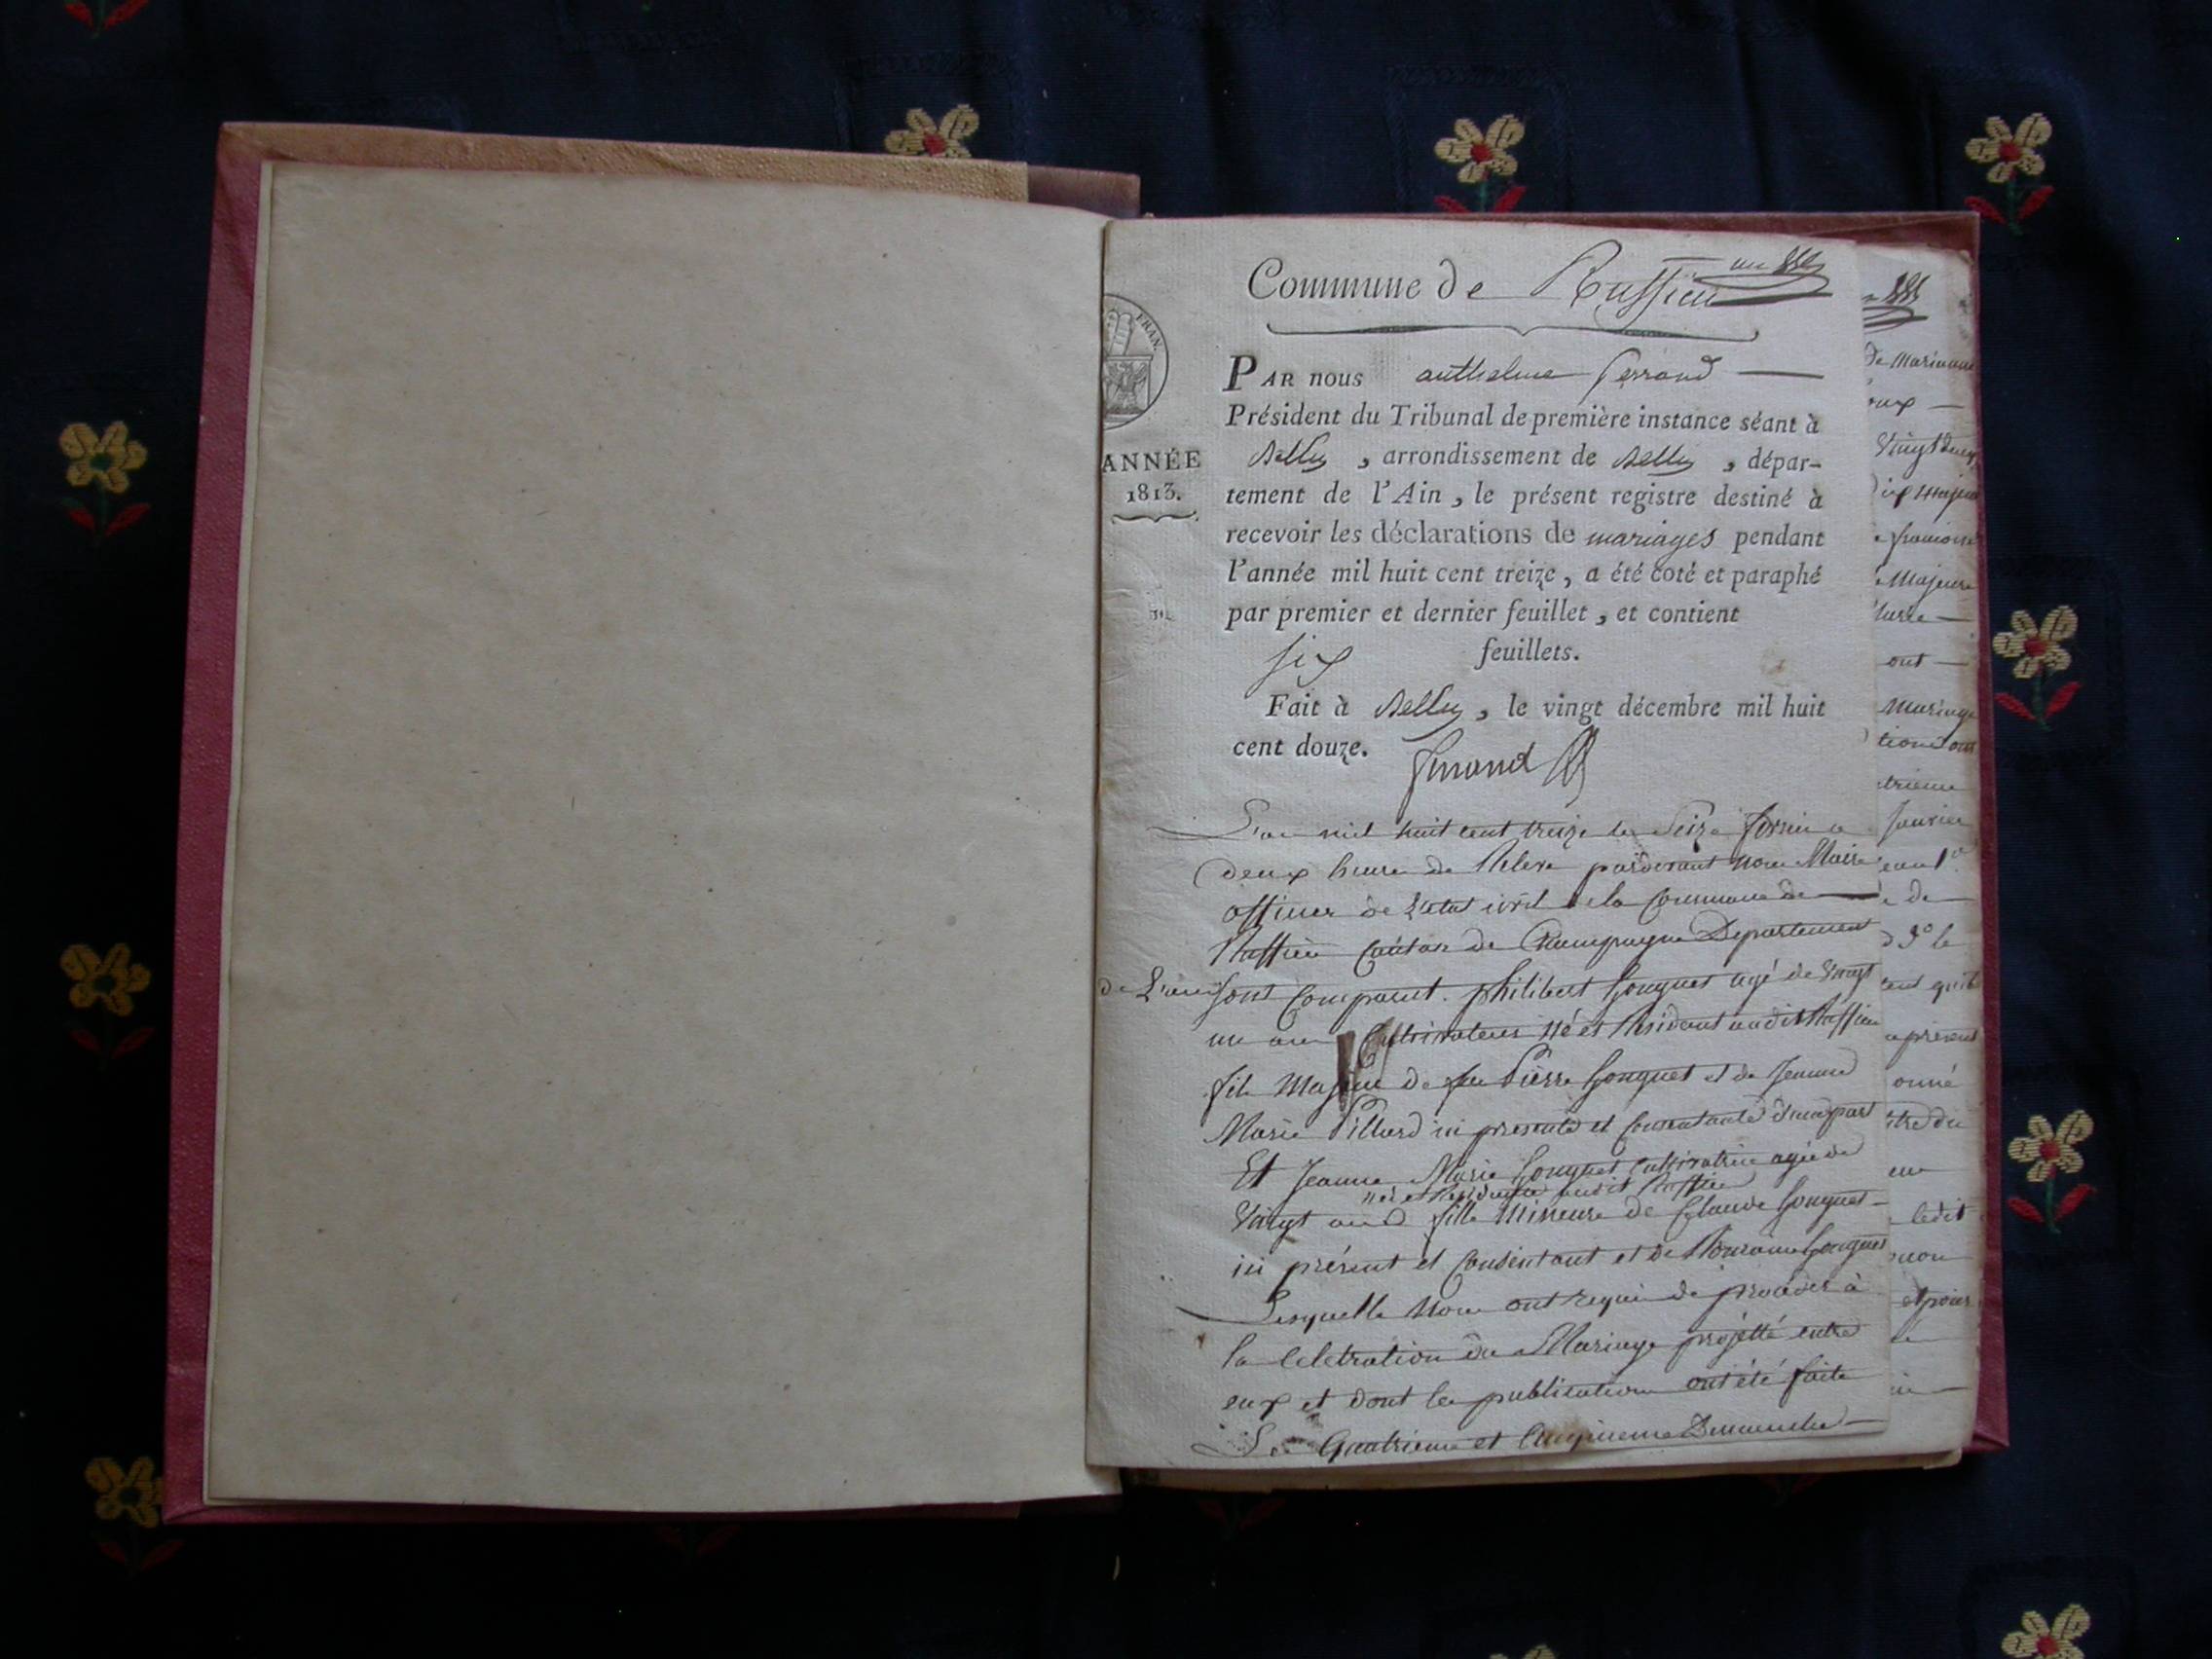 Commune de Ruffieu
un
FRAN.
PAR nous anthelme ferrand
Président du Tribunal de première instance séant à
Belley , arrondissement de Belley , dépar-
ANNÉE
1813.
tement de l'Ain , le présent registre destiné à
recevoir les déclarations de mariages pendant
l'année mil huit cent treize , a été coté et paraphé
par premier et dernier feuillet , et contient
six feuillets.
Fait à Belley , le vingt décembre mil huit
cent douze.
ferrand
L'an mil huit cent treize le Seize a
deux heure de Releve pardevant nous Maire
officier de L'etat civil de la Commune de
Ruffieu Canton de Champagne Departement
de L'ain sont comparut. philibert Gouguet agé de vingt
un ans Cultivateur né et Residant audit Ruffieu
fils Majeur de feu Pierre Gouguet et de Jeanne
Marie Pillard ici presente et Consentante d'une part
Et Jeanne Marie Gouguet Cultivatrice agée de
née et Residante audit Ruffieu
Vingt ans fille Mineure de Claude Gouguet
ici présent et Consentant et de Gouguet
Lesquelle Nous ont requi de procéder à
la Celebration du Mariage projetté entre
eux et dont les publication ont été faite
Le Quatrieme et Cinquieme Dimanche
de
Majeure
ont
Mariage
trieme
Janvier
de
le
a présent
onné
ledit
et pour